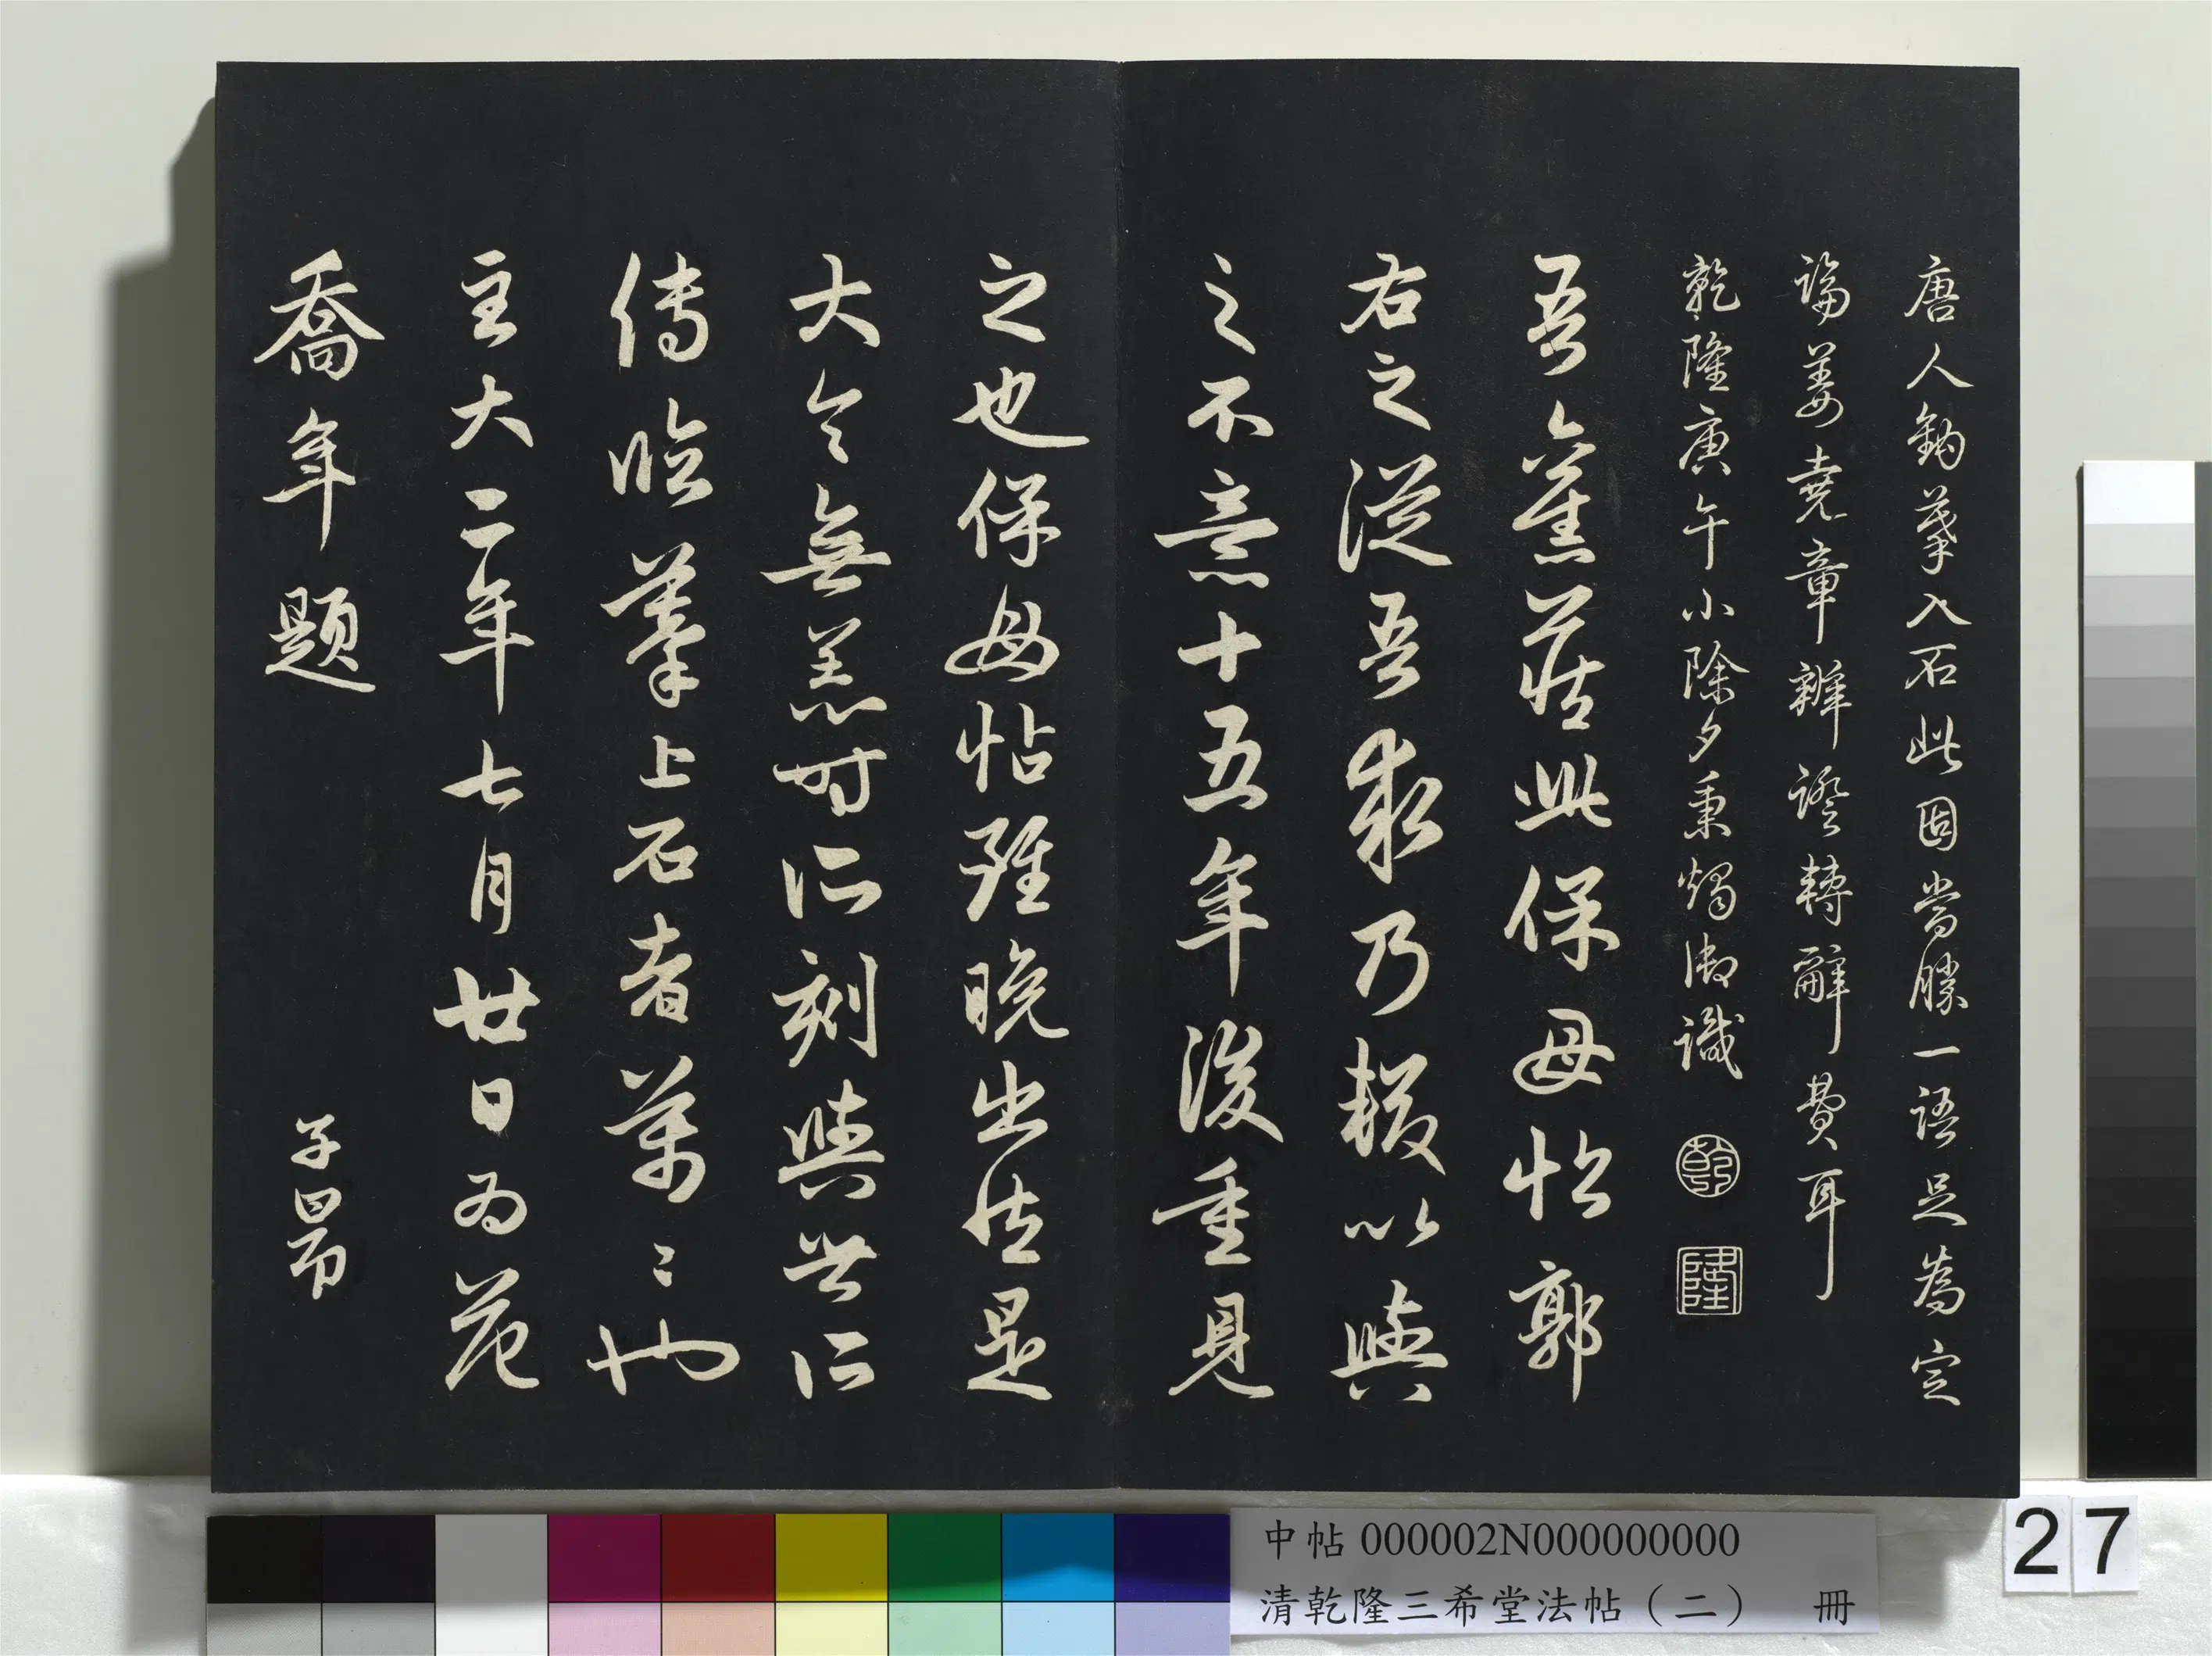 唐人鉤摹入石此固當勝一語足為定
論姜堯章辨證轉辭費耳
乾隆庚午小除夕秉燭御識
乾
隆
吾舊藏此保母帖郭
右之從吾求乃輟以與
之不意十五年後重見
之也保母帖雖晚出然是
大令無恙時所刻與世所
傳臨摹上石者萬〻也
至大二年七月廿日為范
喬年題 子昂
中帖 000002N000000000
清乾隆三希堂法帖（二） 冊
27